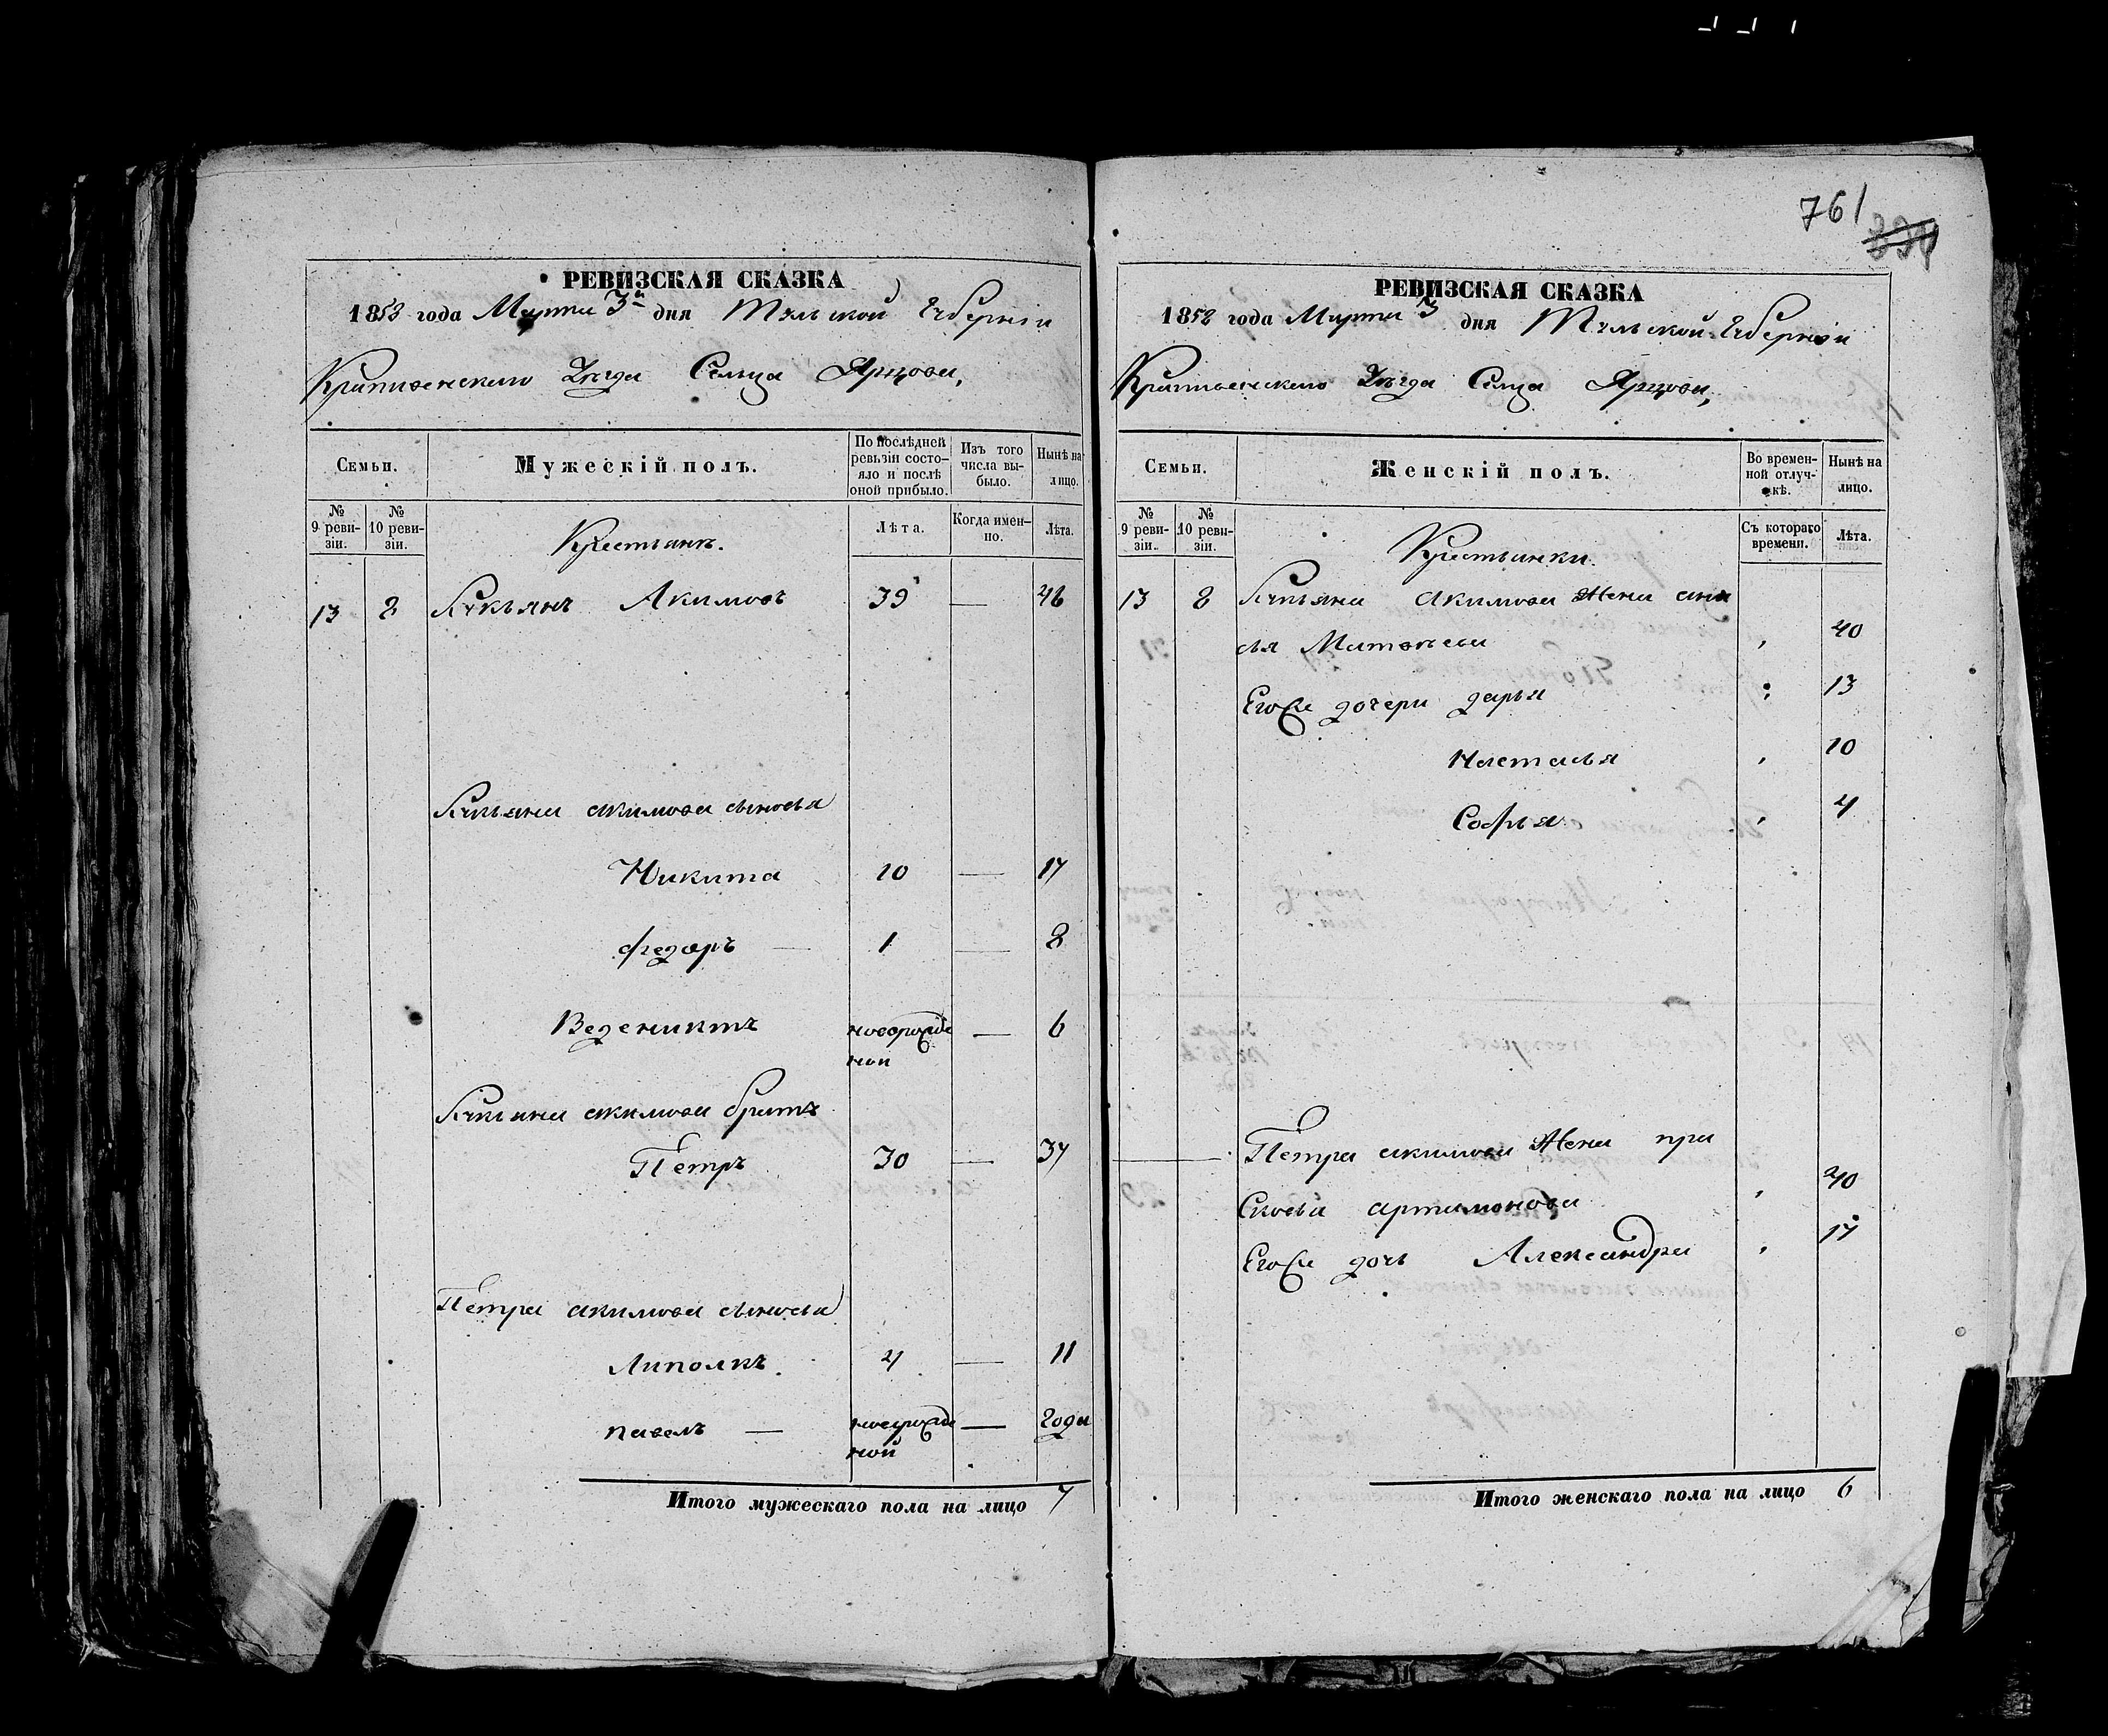 761
РЕВИЗСКАЯ СКАЗКА
1858 года Марта 3й дня Тульской Губерніи
Крапивенскаго Уезда Сельца Ярцова,
Семьи.
Мужескій полъ.
По послѣдней ревизіи состояло и послѣ оной прибыло.
Изъ того числа выбыло.
Нынѣ на лицо.
№ 9 ревизіи.
№ 10 ревизіи.
Крестьянъ.
Лѣта.
Когда именно.
Лѣта.
13 8 Лукьянъ Акимовъ 39 — 46
Лукьяна акимова сыновья
Никита 10 — 17
федоръ — 1 — 8
Ведениктъ новорожде — 6
ной
Лукьяна акимова братъ
Петръ 30 — 37
Петра акимова сыновья
Липолкъ. 4 — 11
павелъ — новорожде — 2 года
ной
Итого мужескаго пола на лицо 7
РЕВИЗСКАЯ СКАЗКА
1858 года Марта 3 дня Тульской Губерніи
Крапивенскаго Уезда Селца Ярцова,
Семьи.
Женскій полъ.
Во временной отлучкѣ.
Нынѣ на лицо.
№ 9 ревизіи.
№ 10 ревизіи.
Крестьянки.
Съ котораго времени.
Лѣта.
13 8 Лукьяна акимова Жена
Матвѣева 40
Егоже дочери дарья 13
Настасья 10
Софья 4
Петра акимова Жена пра
сковья артамонова 40
Егоже дочь Александра 17
Итого женскаго пола на лицо 6